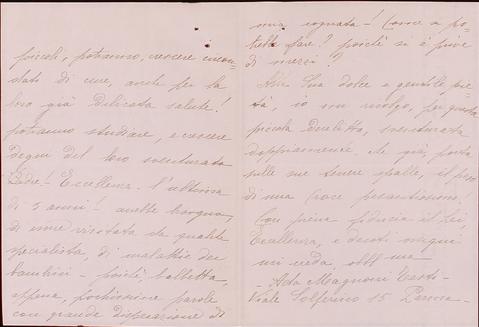 piccoli, potranno, crescere circon-
dati di cure, anche per la
loro già delicata salute!
potranno studiare, e crescere
degni del loro sventurato
Padre! Eccellenza. l'ultimina
di 3 anni! avrebbe bisogno,
di essere visitata da qualche
specialista, di malattie dei
bambini - poichè, balbetta,
appena, pochissime parole
con grande disperazione di
mia cognata! Come a po-
trebbe fare? poichè si è prive
di mezzi?
Alla Sua dolce e gentile pie-
tà, io mi rivolgo, per questa
piccola Derelitta, sventurata
doppiamente che già, porta
sulle sue tenere spalle, il peso
di una Croce pesantissima!
Con piena fiducia in Lei,
Eccellenza, e devoti ossequi
mi creda obbl ma
- Ada Magnoni
Viale Solferino 15 Parma -